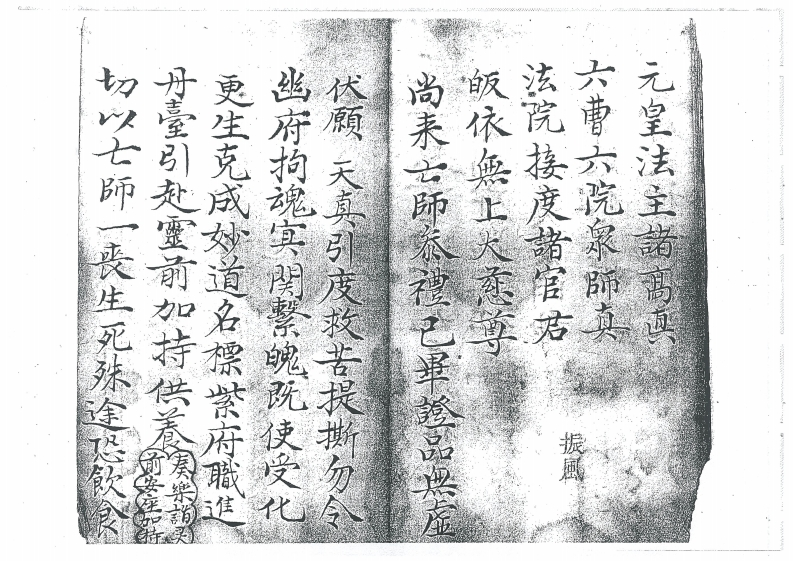 元皇法主諸髙眞
六曹六院衆師真
法院接度諸官君
振風
皈依無上大慈尊
尚来亡師叅禮已畢證品無虛
伏願 天真引度救苦提撕勿令
幽府拘魂冥関繫魄既使受化
更生克成妙道名標紫府職進
丹臺引赴靈前加持供養
奏樂詣灵
前安座加持
切以亡師一丧生死殊途恐飲食